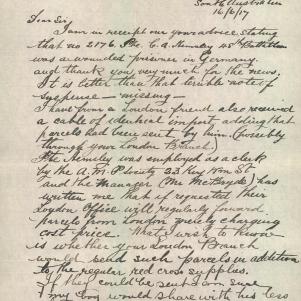 South Australia
16/6/17
Dear Sir
I am in receipt our your advice stating
that no 2176 Pte. C. A. 45th Battalion
was a wounded prisoner in Germany.
and thank you very much for the news.
It is better than that terrible note of
suspense — missing —
I have from a London friend also received
a cable of identical import adding that
parcels had been sent by him. (possibly
through your London Branch)
Pte was employed as a clerk
by the A. M. P. Society 23 King Wm St
and the Manager (Mr McBryde) has
written me that if requested their
London Office will regularly forward
parcels from London weekly charging
cost price. What I wish to know
is whether your London Branch
would send such parcels in addition
to the regular red cross supplies.
If they could be sent I am sure
my boy would share with his less